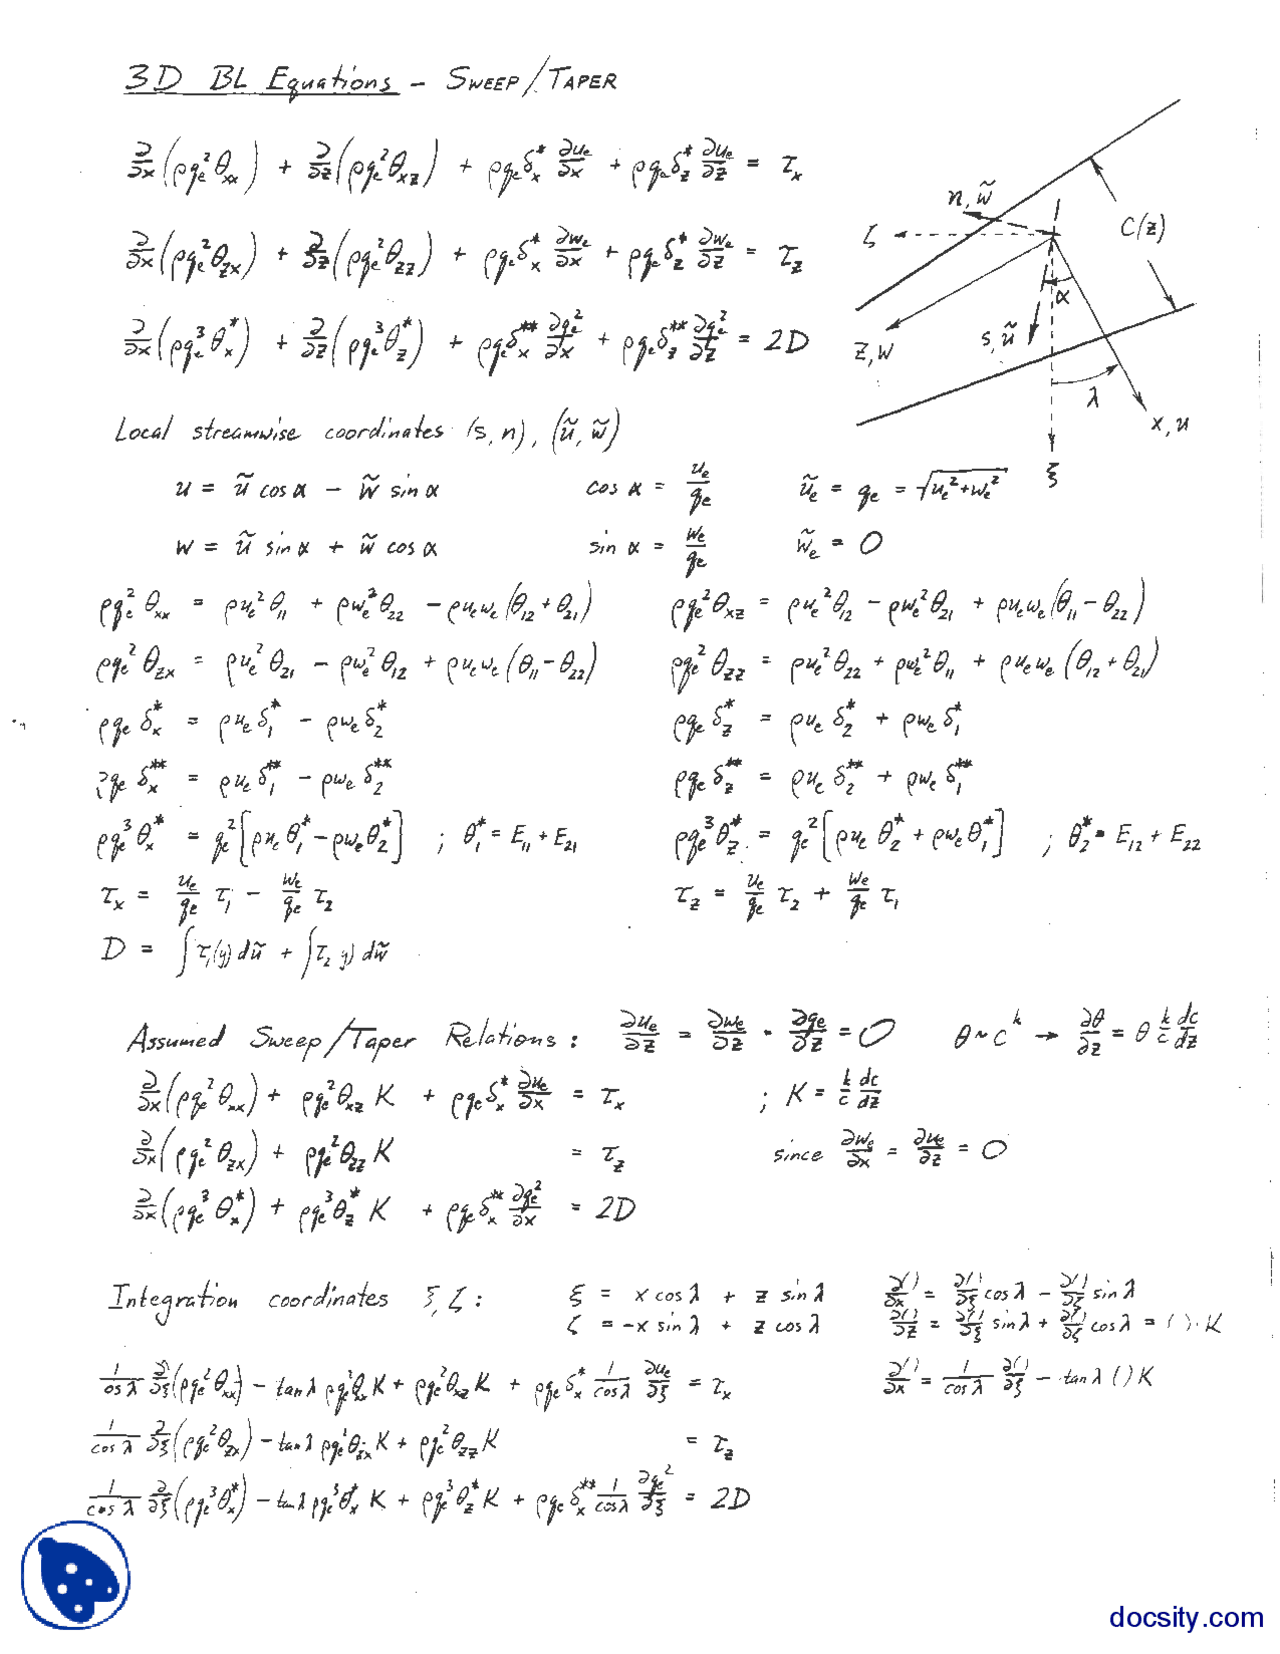 3D BL Equations – SWEEP/TAPER
∂/∂x(ρqe²θxx) + ∂/∂z(ρqe²θxz) + ρqeδx* ∂ue/∂x + ρqeδz* ∂ue/∂z = τx
∂/∂x(ρqe²θzx) + ∂/∂z(ρqe²θzz) + ρqeδx* ∂we/∂x + ρqeδz* ∂we/∂z = τz
∂/∂x(ρqe³θx*) + ∂/∂z(ρqe³θz*) + ρqeδx** ∂qe²/∂x + ρqeδz** ∂qe²/∂z = 2D
n, w̃
ζ
C(z)
α
s, ũ
z, w
λ
x, u
ξ
Local streamwise coordinates (s, n), (ũ, w̃)
u = ũ cos α – w̃ sin α cos α = ue/qe ũe = qe = √(ue²+we²)
w = ũ sin α + w̃ cos α sin α = we/qe w̃e = 0
ρqe²θxx = ρue²θ11 + ρwe²θ22 – ρuewe(θ12+θ21) ρqe²θxz = ρue²θ12 – ρwe²θ21 + ρuewe(θ11–θ22)
ρqe²θzx = ρue²θ21 – ρwe²θ12 + ρuewe(θ11–θ22) ρqe²θzz = ρue²θ22 + ρwe²θ11 + ρuewe(θ12+θ21)
ρqeδx* = ρueδ1* – ρweδ2* ρqeδz* = ρueδ2* + ρweδ1*
ρqeδx** = ρueδ1** – ρweδ2** ρqeδz** = ρueδ2** + ρweδ1**
ρqe³θx* = qe²[ρueθ1* – ρweθ2*] ; θ1* = E11 + E21 ρqe³θz* = qe²[ρueθ2* + ρweθ1*] ; θ2* = E12 + E22
τx = ue/qe τ1 – we/qe τ2 τz = ue/qe τ2 + we/qe τ1
D = ∫τ1(y) dũ + ∫τ2 y) dw̃
Assumed Sweep/Taper Relations: ∂ue/∂z = ∂we/∂z = ∂qe/∂z = 0 θ ~ c^k → ∂θ/∂z = θ k/c dc/dz
∂/∂x(ρqe²θxx) + ρqe²θxz K + ρqeδx* ∂ue/∂x = τx ; K = k/c dc/dz
∂/∂x(ρqe²θzx) + ρqe²θzz K = τz since ∂we/∂x = ∂ue/∂z = 0
∂/∂x(ρqe³θx*) + ρqe³θz* K + ρqeδx** ∂qe²/∂x = 2D
Integration coordinates ξ, ζ: ξ = x cos λ + z sin λ ∂()/∂x = ∂()/∂ξ cos λ – ∂()/∂ζ sin λ
ζ = –x sin λ + z cos λ ∂()/∂z = ∂()/∂ξ sin λ + ∂()/∂ζ cos λ = ()·K
1/cos λ ∂/∂ξ(ρqe²θxx) – tan λ ρqe²θxx K + ρqe²θxz K + ρqeδx* 1/cos λ ∂ue/∂ξ = τx ∂()/∂x = 1/cos λ ∂()/∂ξ – tan λ ()K
1/cos λ ∂/∂ξ(ρqe²θzx) – tan λ ρqe²θzx K + ρqe²θzz K = τz
1/cos λ ∂/∂ξ(ρqe³θx*) – tan λ ρqe³θx* K + ρqe³θz* K + ρqeδx** 1/cos λ ∂qe²/∂ξ = 2D
docsity.com